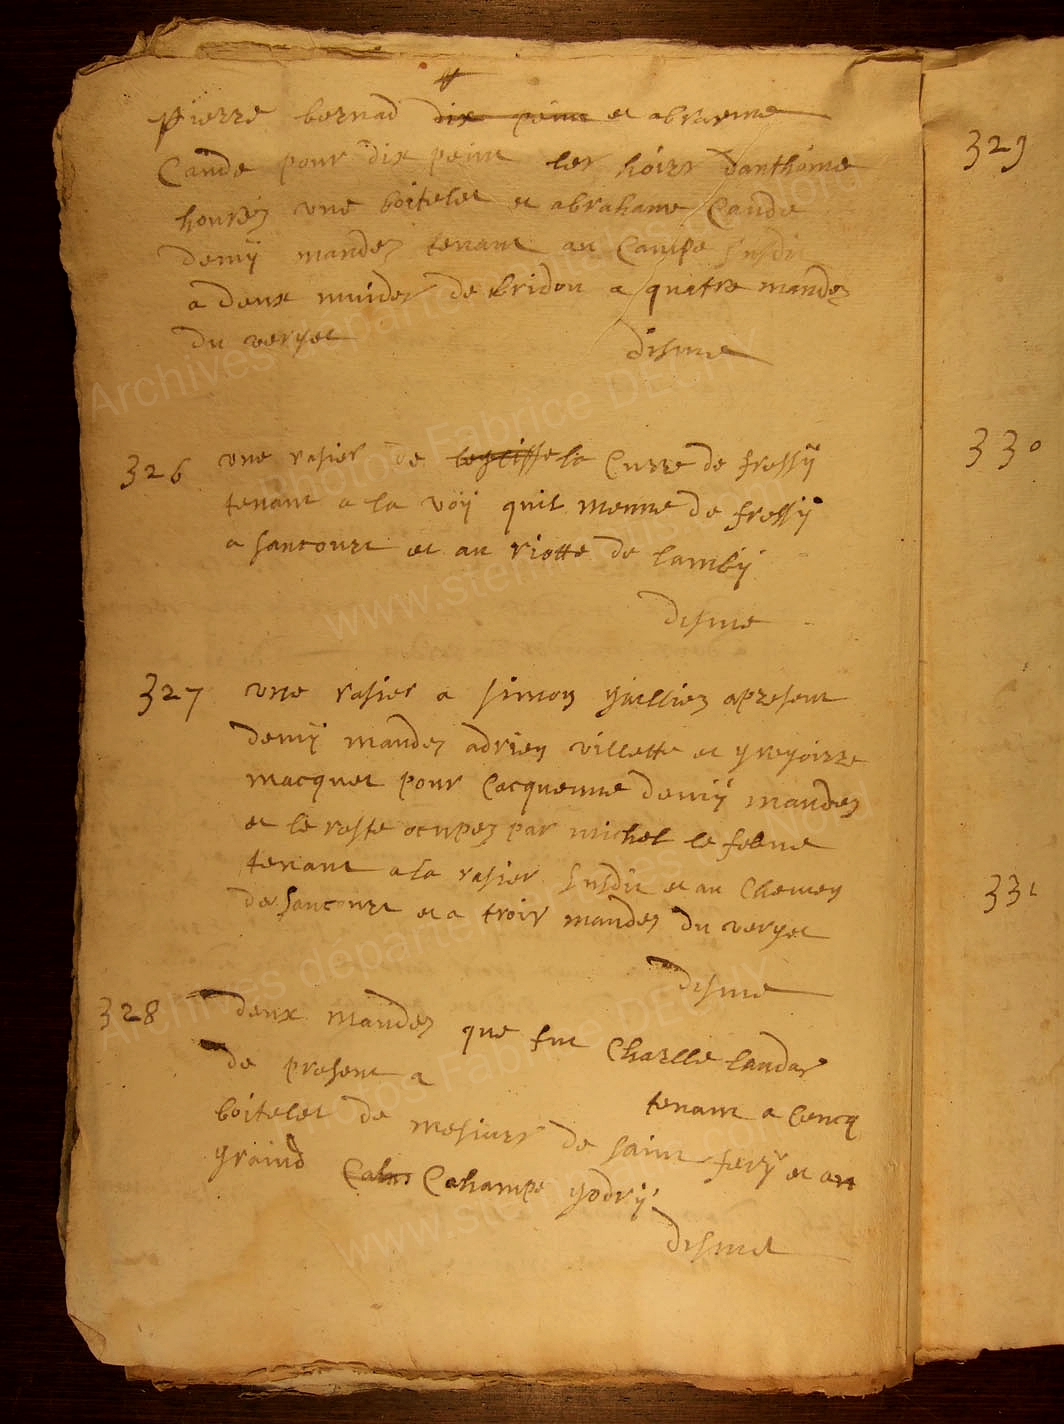 pierre bernad dix peinn et abraeme
Cande pour dix peinn les hoirs danthóine
hourez une boitelet et abrahame Cande
demÿ mandez tenant au Campe susdit
a deux muides de bridou a quatre mandez
du veryet
disme
326 une rasier de legslisse la Curre de fressÿ
tenant a la voÿ quil menne de fressÿ
a sancourt et au riotte de lambÿ
disme
327 une rasier a simon guilliez apresent
demÿ mandez adrien villette et gregoirre
macquet pour Cacquenne demÿ mandez
et le reste ocupez par michel le febue
tenant a la rasier susdit et au Chemen
de sancourt et a troir mandez du veryet
disme
328 deux mandez que fut Charlle landas
de present a
tenant a Cencq
boitelet de mesiurs de saint ferÿ et au
graind Cahampe godrÿ
disme
329
330
331
Archives départementales du Nord
Photos Fabrice DECHY